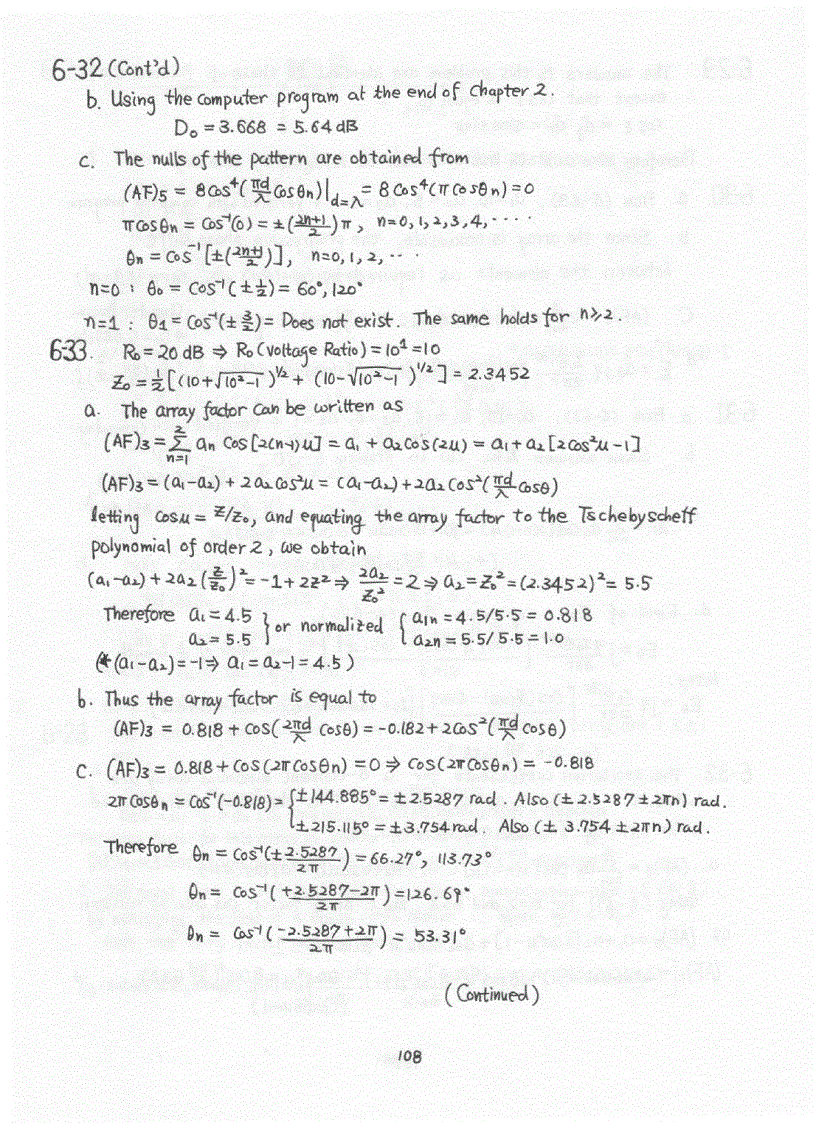 6-32 (Cont'd)
b. Using the computer program at the end of Chapter 2.
D₀ = 3.668 = 5.64 dB
c. The nulls of the pattern are obtained from
(AF)₅ = 8 Cos⁴(πd/λ Cosθn)|d=λ = 8 Cos⁴(π Cosθn) = 0
π Cosθn = Cos⁻¹(0) = ±(2n+1/2)π, n=0,1,2,3,4,····
θn = Cos⁻¹[±(2n+1/2)], n=0,1,2,···
n=0 : θ₀ = Cos⁻¹(±1/2) = 60°, 120°
n=1 : θ₁ = Cos⁻¹(±3/2) = Does not exist. The same holds for n≥2.
6-33. R₀ = 20 dB ⇒ R₀ (Voltage Ratio) = 10¹ = 10
Z₀ = 1/2[(10+√(10²-1))^1/2 + (10-√(10²-1))^1/2] = 2.3452
a. The array factor can be written as
(AF)₃ = Σ(n=1 to 2) an Cos[2(n-1)u] = a₁ + a₂Cos(2u) = a₁ + a₂[2Cos²u - 1]
(AF)₃ = (a₁-a₂) + 2a₂Cos²u = (a₁-a₂) + 2a₂ Cos²(πd/λ Cosθ)
letting Cosu = Z/Z₀, and equating the array factor to the Tschebyscheff
polynomial of order 2, we obtain
(a₁-a₂) + 2a₂(Z/Z₀)² = -1 + 2Z² ⇒ 2a₂/Z₀² = 2 ⇒ a₂ = Z₀² = (2.3452)² = 5.5
Therefore a₁ = 4.5 } or normalized { a1n = 4.5/5.5 = 0.818
a₂ = 5.5 a2n = 5.5/5.5 = 1.0
(*(a₁-a₂) = -1 ⇒ a₁ = a₂-1 = 4.5)
b. Thus the array factor is equal to
(AF)₃ = 0.818 + Cos(2πd/λ Cosθ) = -0.182 + 2Cos²(πd/λ Cosθ)
C. (AF)₃ = 0.818 + Cos(2πCosθn) = 0 ⇒ Cos(2πCosθn) = -0.818
2π Cosθn = Cos⁻¹(-0.818) = { ±144.885° = ±2.5287 rad. Also (±2.5287 ± 2πn) rad.
±215.115° = ±3.754 rad. Also (± 3.754 ± 2πn) rad.
Therefore θn = Cos⁻¹(±2.5287/2π) = 66.27°, 113.73°
θn = Cos⁻¹(+2.5287-2π/2π) = 126.69°
θn = Cos⁻¹(-2.5287+2π/2π) = 53.31°
(Continued)
108